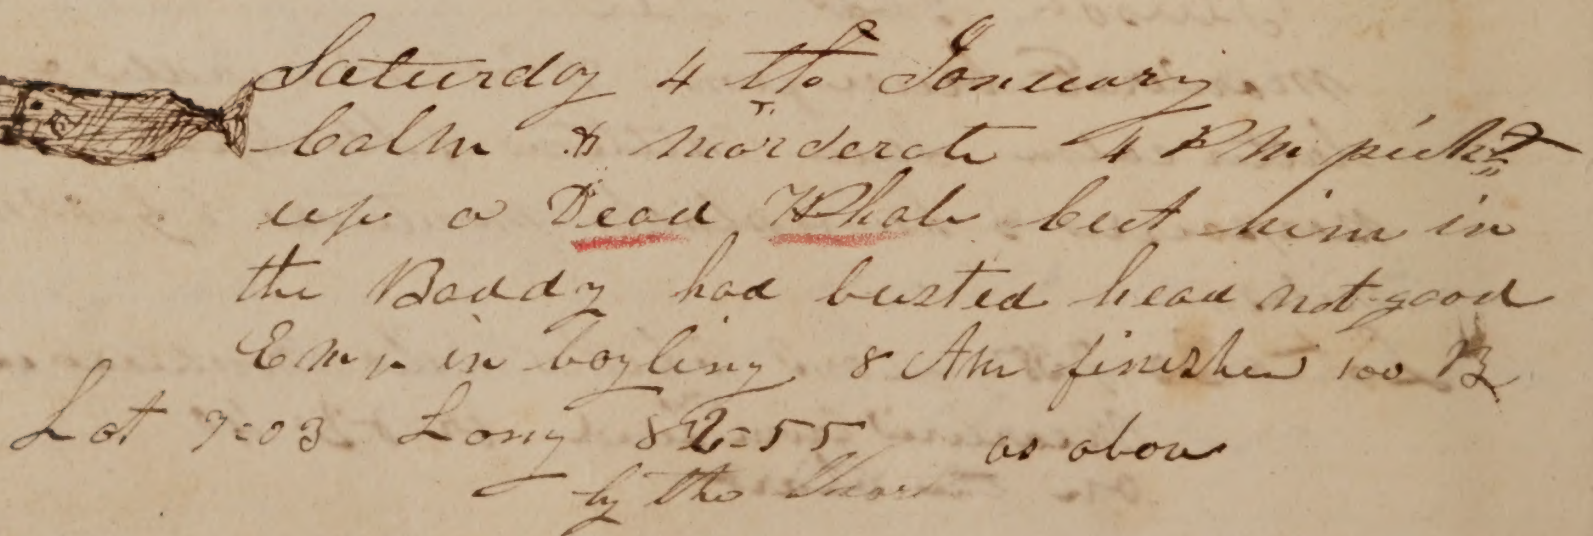 Saturday 4 th January
Calm & morderate 4 PM pickt
up a Dead Whale Cut him in
the Boddy had busted head not good
Emp in boyling 8 AM finished 100 B
Lat 7=03 Long 82=55 as above
by the